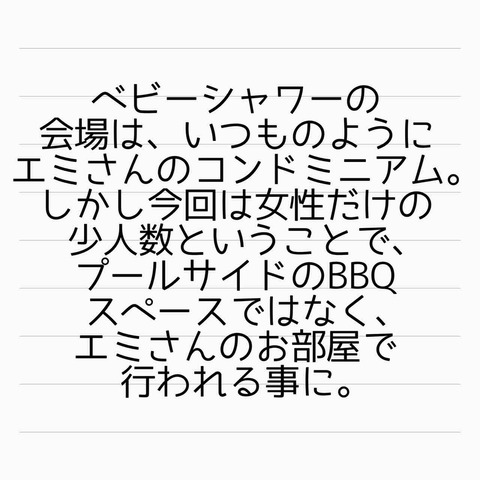 ベビーシャワーの
会場は、いつものように
エミさんのコンドミニアム。
しかし今回は女性だけの
少人数ということで、
プールサイドのBBQ
スペースではなく、
エミさんのお部屋で
行われる事に。